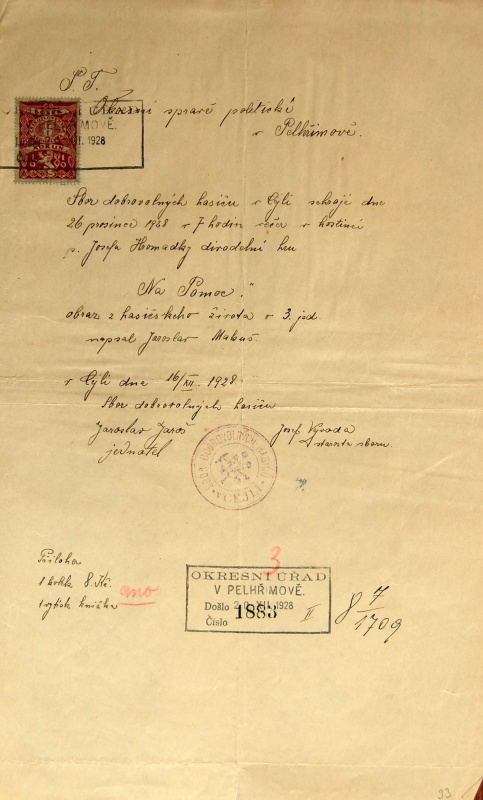 P. T.
Okresní správě politické
v Pelhřimově.
Sbor dobrovolných hasičů v Cyli sehraje dne
26 prosince 1928 v 7 hodin večer v hostinci
p. Josefa Homadky divadelní hru
„Na Pomoc."
obraz z hasičského života o 3. jed
napsal Jaroslav
v Cyli dne 16/XII. 1928
Sbor dobrovolných hasičů
Jaroslav Jaroš
jednatel
Josef Vývoda
starosta sboru.
Příloha
1 kolek 8 Kč.
1 výtisk knížka
ano
3
OKRESNÍ ÚŘAD
V PELHŘIMOVĚ.
Došlo 20. XII. 1928
Číslo 1883 II
8 7/1709
33